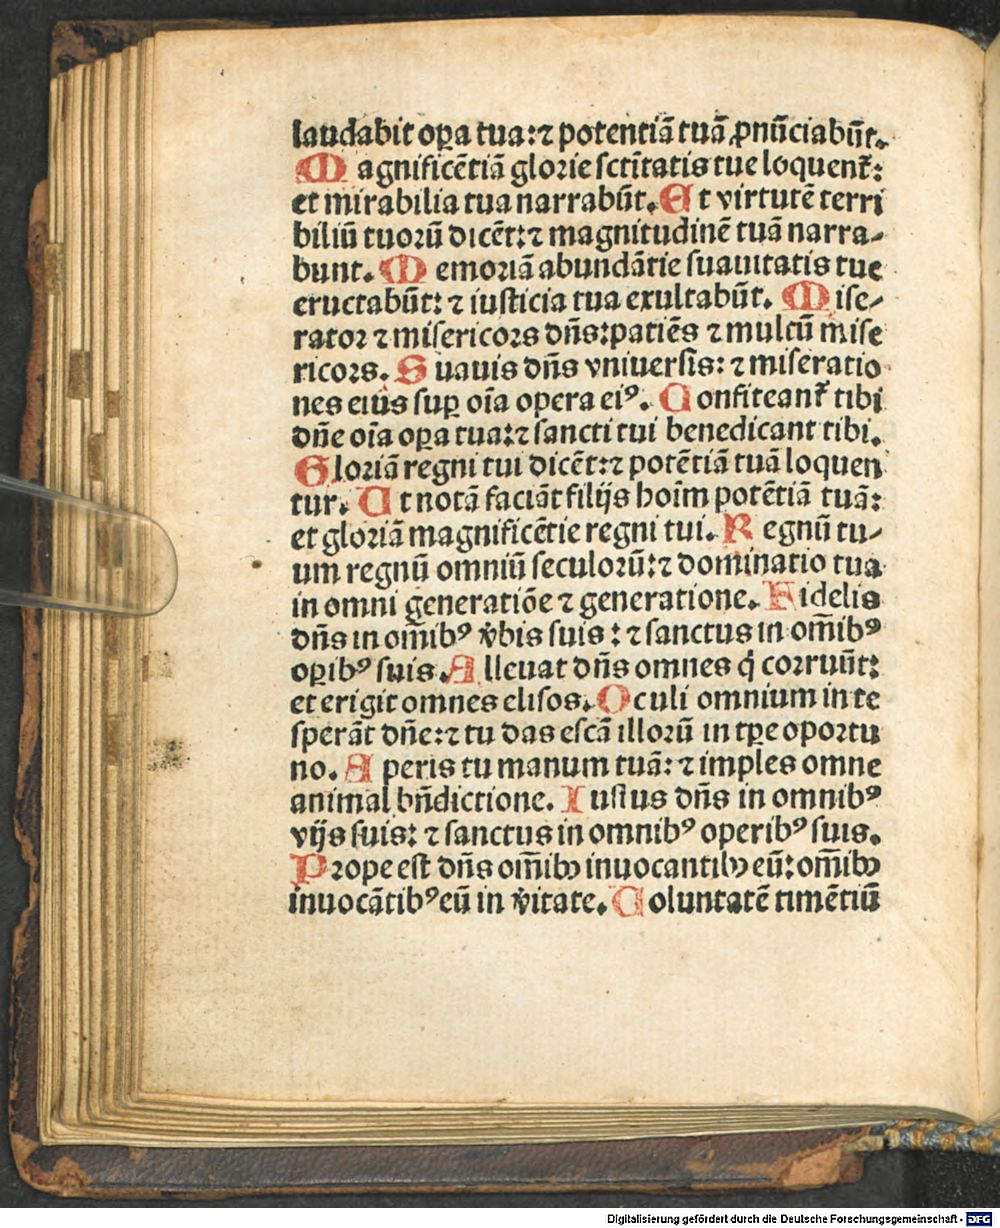 laudabit oꝑa tua: ⁊ potentiā tuā ꝓnūciabūt.
Magnificētiā glorie sctītatis tue loquent᷑:
et mirabilia tua narrabūt. Et virtutē terri
biliū tuoꝛū dicēt: ⁊ magnitudinē tuā narra-
bunt. Memoꝛiā abundātie suauitatis tue
eructabūt: ⁊ iusticia tua exultabūt. Mise-
ratoꝛ ⁊ misericoꝛs dñs: patiēs ⁊ multū mise
ricoꝛs. Suauis dñs vniuersis: ⁊ miseratio
nes eius suꝑ oīa opera eiꝰ. Confiteant᷑ tibi
dñe oīa oꝑa tua: ⁊ sancti tui benedicant tibi.
Gloꝛiā regni tui dicēt: ⁊ potētiā tuā loquen
tur. Ut notā faciāt filijs hoīm potētiā tuā:
et gloꝛiā magnificētie regni tui. Regnū tu-
um regnū omniū seculoꝛū: ⁊ dominatio tua
in omni generatiōe ⁊ generatione. Fidelis
dñs in om̄ibꝰ v̄bis suis: ⁊ sanctus in om̄ibꝰ
oꝑibꝰ suis. Alleuat dñs omnes q̇ coꝛruūt:
et erigit omnes elisos. Oculi omnium in te
sperāt dñe: ⁊ tu das escā illoꝛū in tꝑe opoꝛtu
no. Aperis tu manum tuā: ⁊ imples omne
animal bñdictione. Iustus dñs in omnibꝰ
vijs suis: ⁊ sanctus in omnibꝰ operibꝰ suis.
Pꝛope est dñs om̄ibꝫ inuocantibꝫ eū: om̄ibꝫ
inuocātibꝰ eū in v̄itate. Uoluntatē timētiū
Digitalisierung gefördert durch die Deutsche Forschungsgemeinschaft - DFG